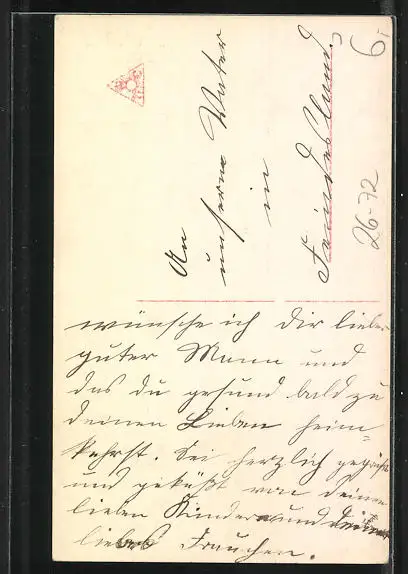 An
unsern Vater
in
Feindes Land.
6
26-72
wünsche ich dir lieber
guter Mann und
das du gesund bald zu
deinen Lieben heim=
kehrst. Sei herzlich gegrüßt
und geküßt von deinen
lieben Kindern und
liebes Frauchen.